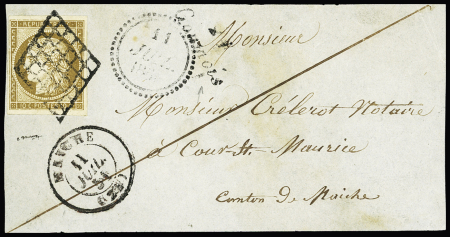 11
JUIL.
Monsieur
Monsieur Crélerot Notaire
à Cour-St. Maurice
Canton de Maiche
MAICHE
11
JUIL.
51
(24)